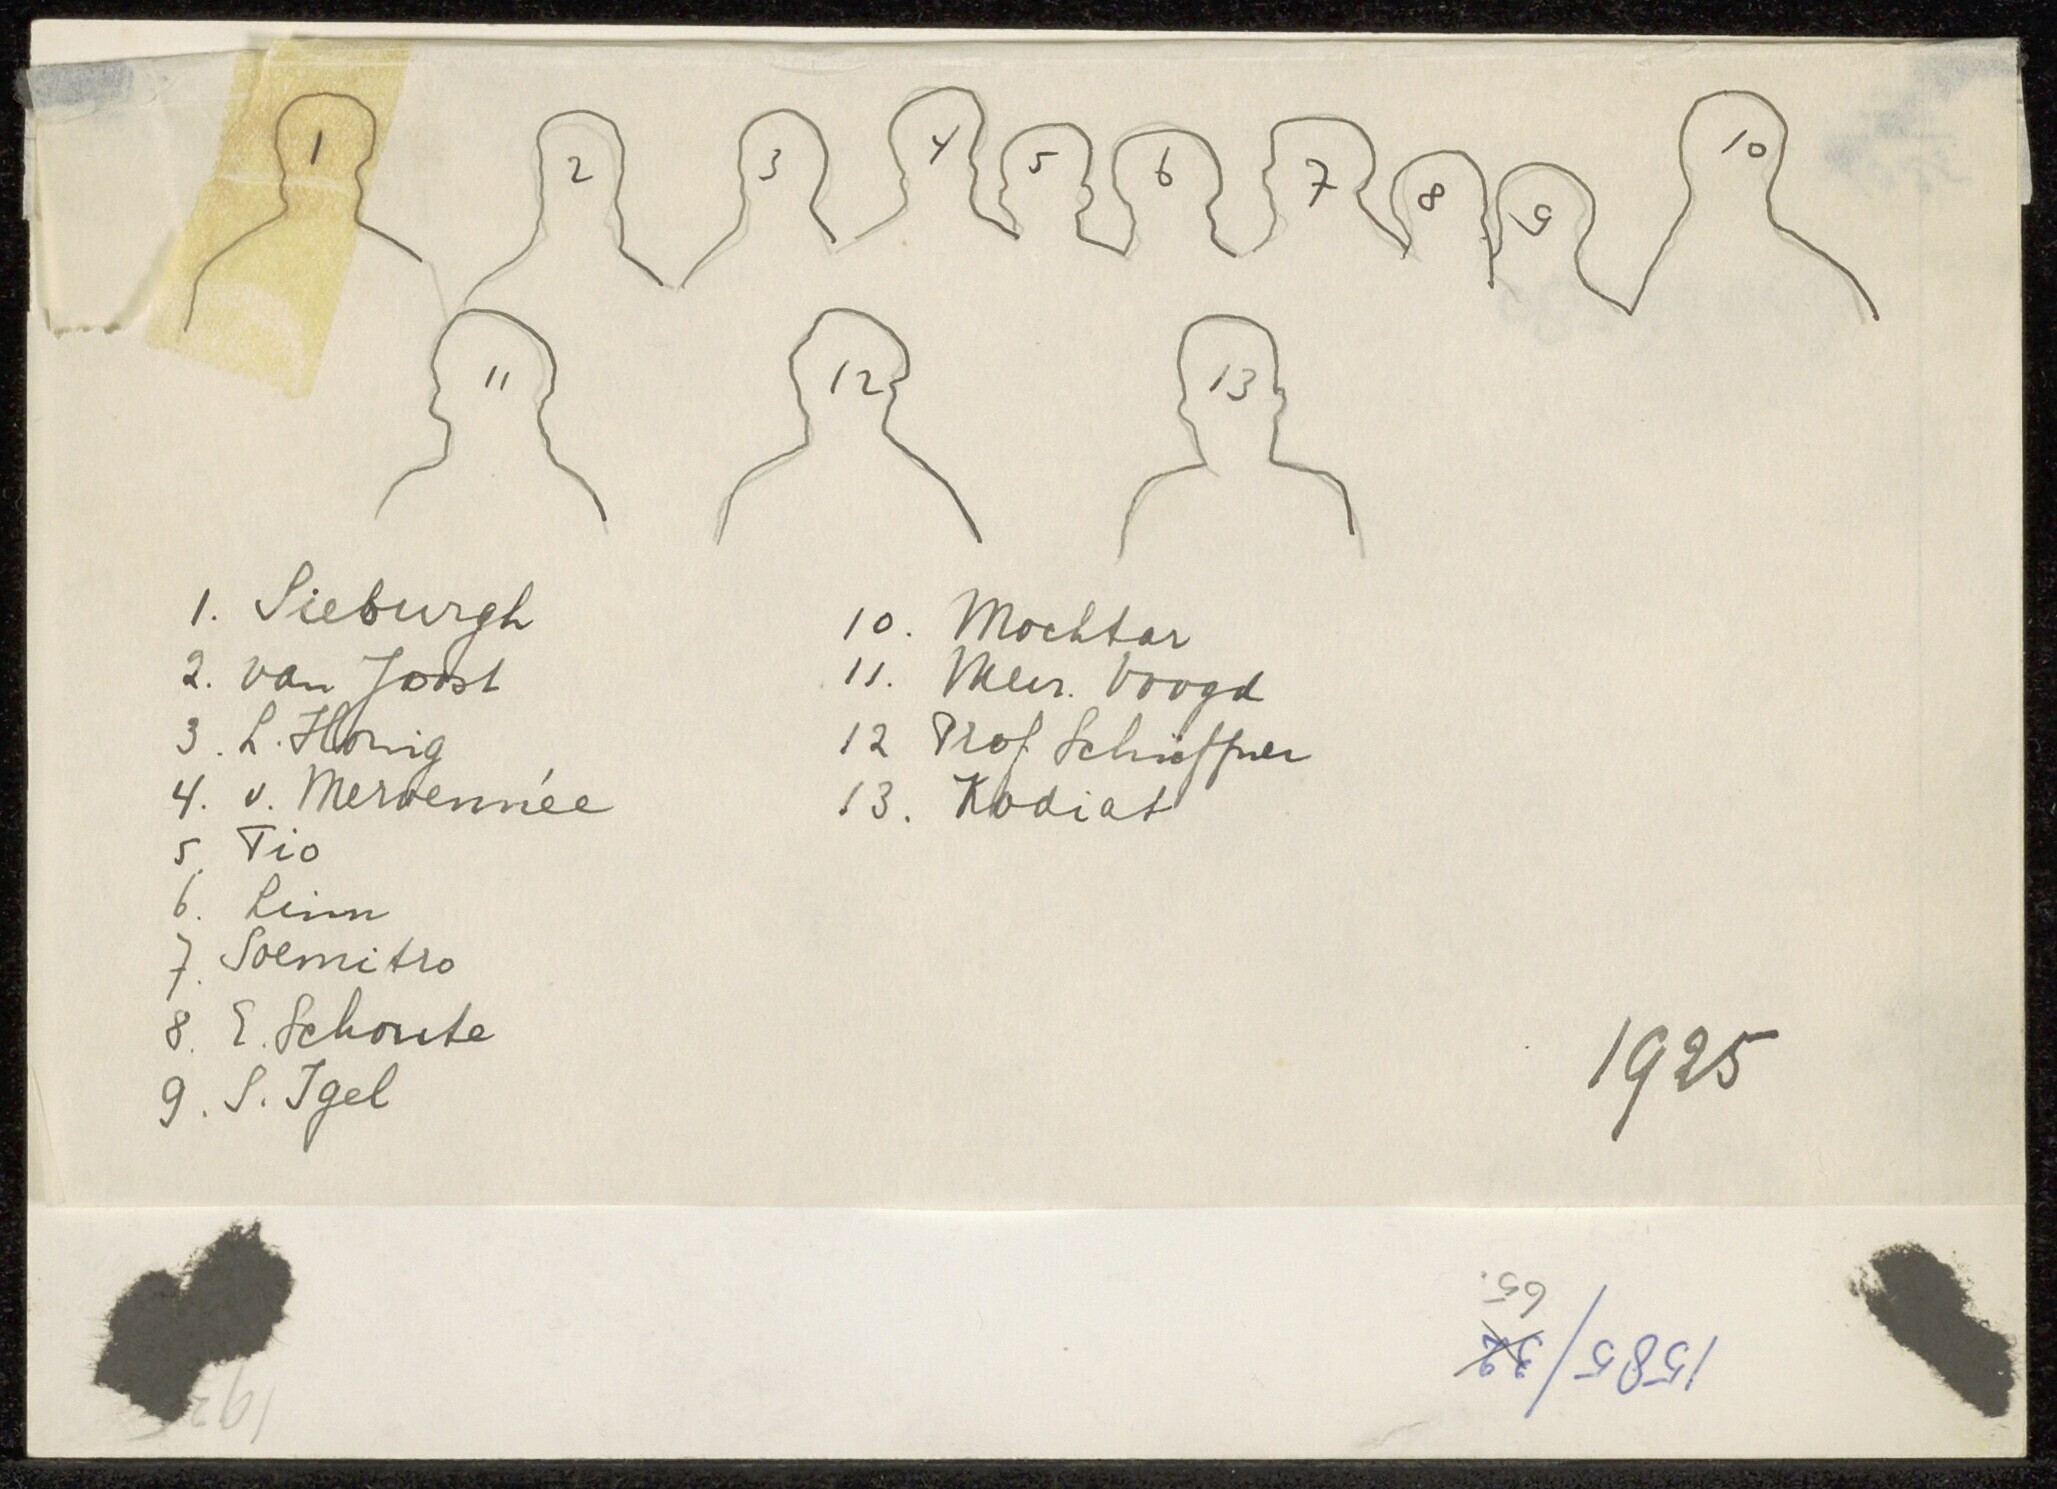 1
2
3
4
5
6
7
8
9
10
11
12
13
1. Sieburgh
2. van Joost
3. L. Honig
4. v. Meroennée
5. Tio
6. Linn
7. Soemitro
8. E. Schoute
9. S. Igel
10. Mochtar
11. Mevr. Voogd
12 Prof Schüffner
13. Kodiat
1925
1585/32
65.